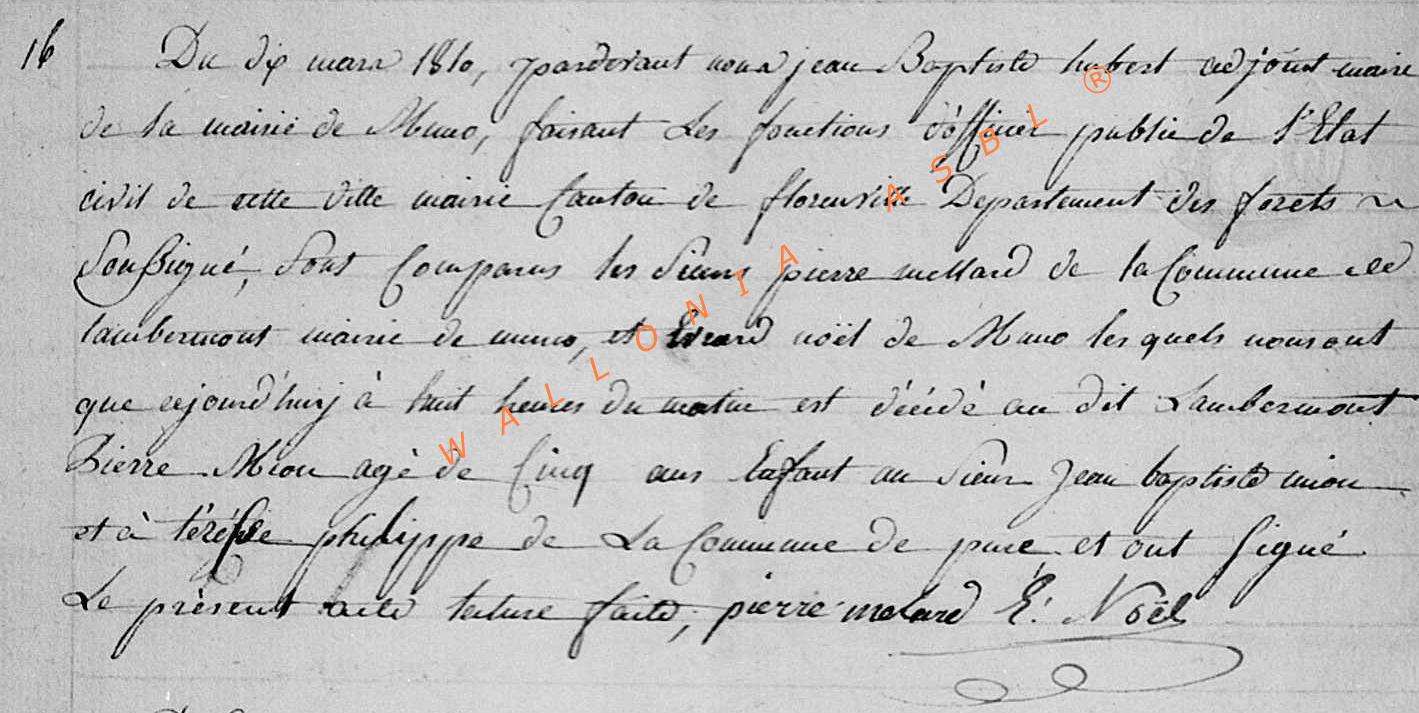 16
Du dix mars 1810, pardevant nous jean Baptiste hubert adjoint maire
de la mairie de Muno, faisant Les fonctions d'officier public de l'Etat
civil de cette ditte mairie Canton de florenville Departement des forets ~
Soussigné, Sont Comparus les Sieurs pierre mellard de la Commune de
lambermont mairie de muno, et Evrard noël de Muno lesquels nous ont
que ajourd'huij à huit heures du matin est décédé au dit Lambermont
Pierre Mion agé de Cinq ans Enfant au Sieur Jean baptiste mion
et à térése philippe de La Commune de pure et ont Signé
Le présent acte lecture faite, pierre melard E. Noël
WALLONIA ASBL ®